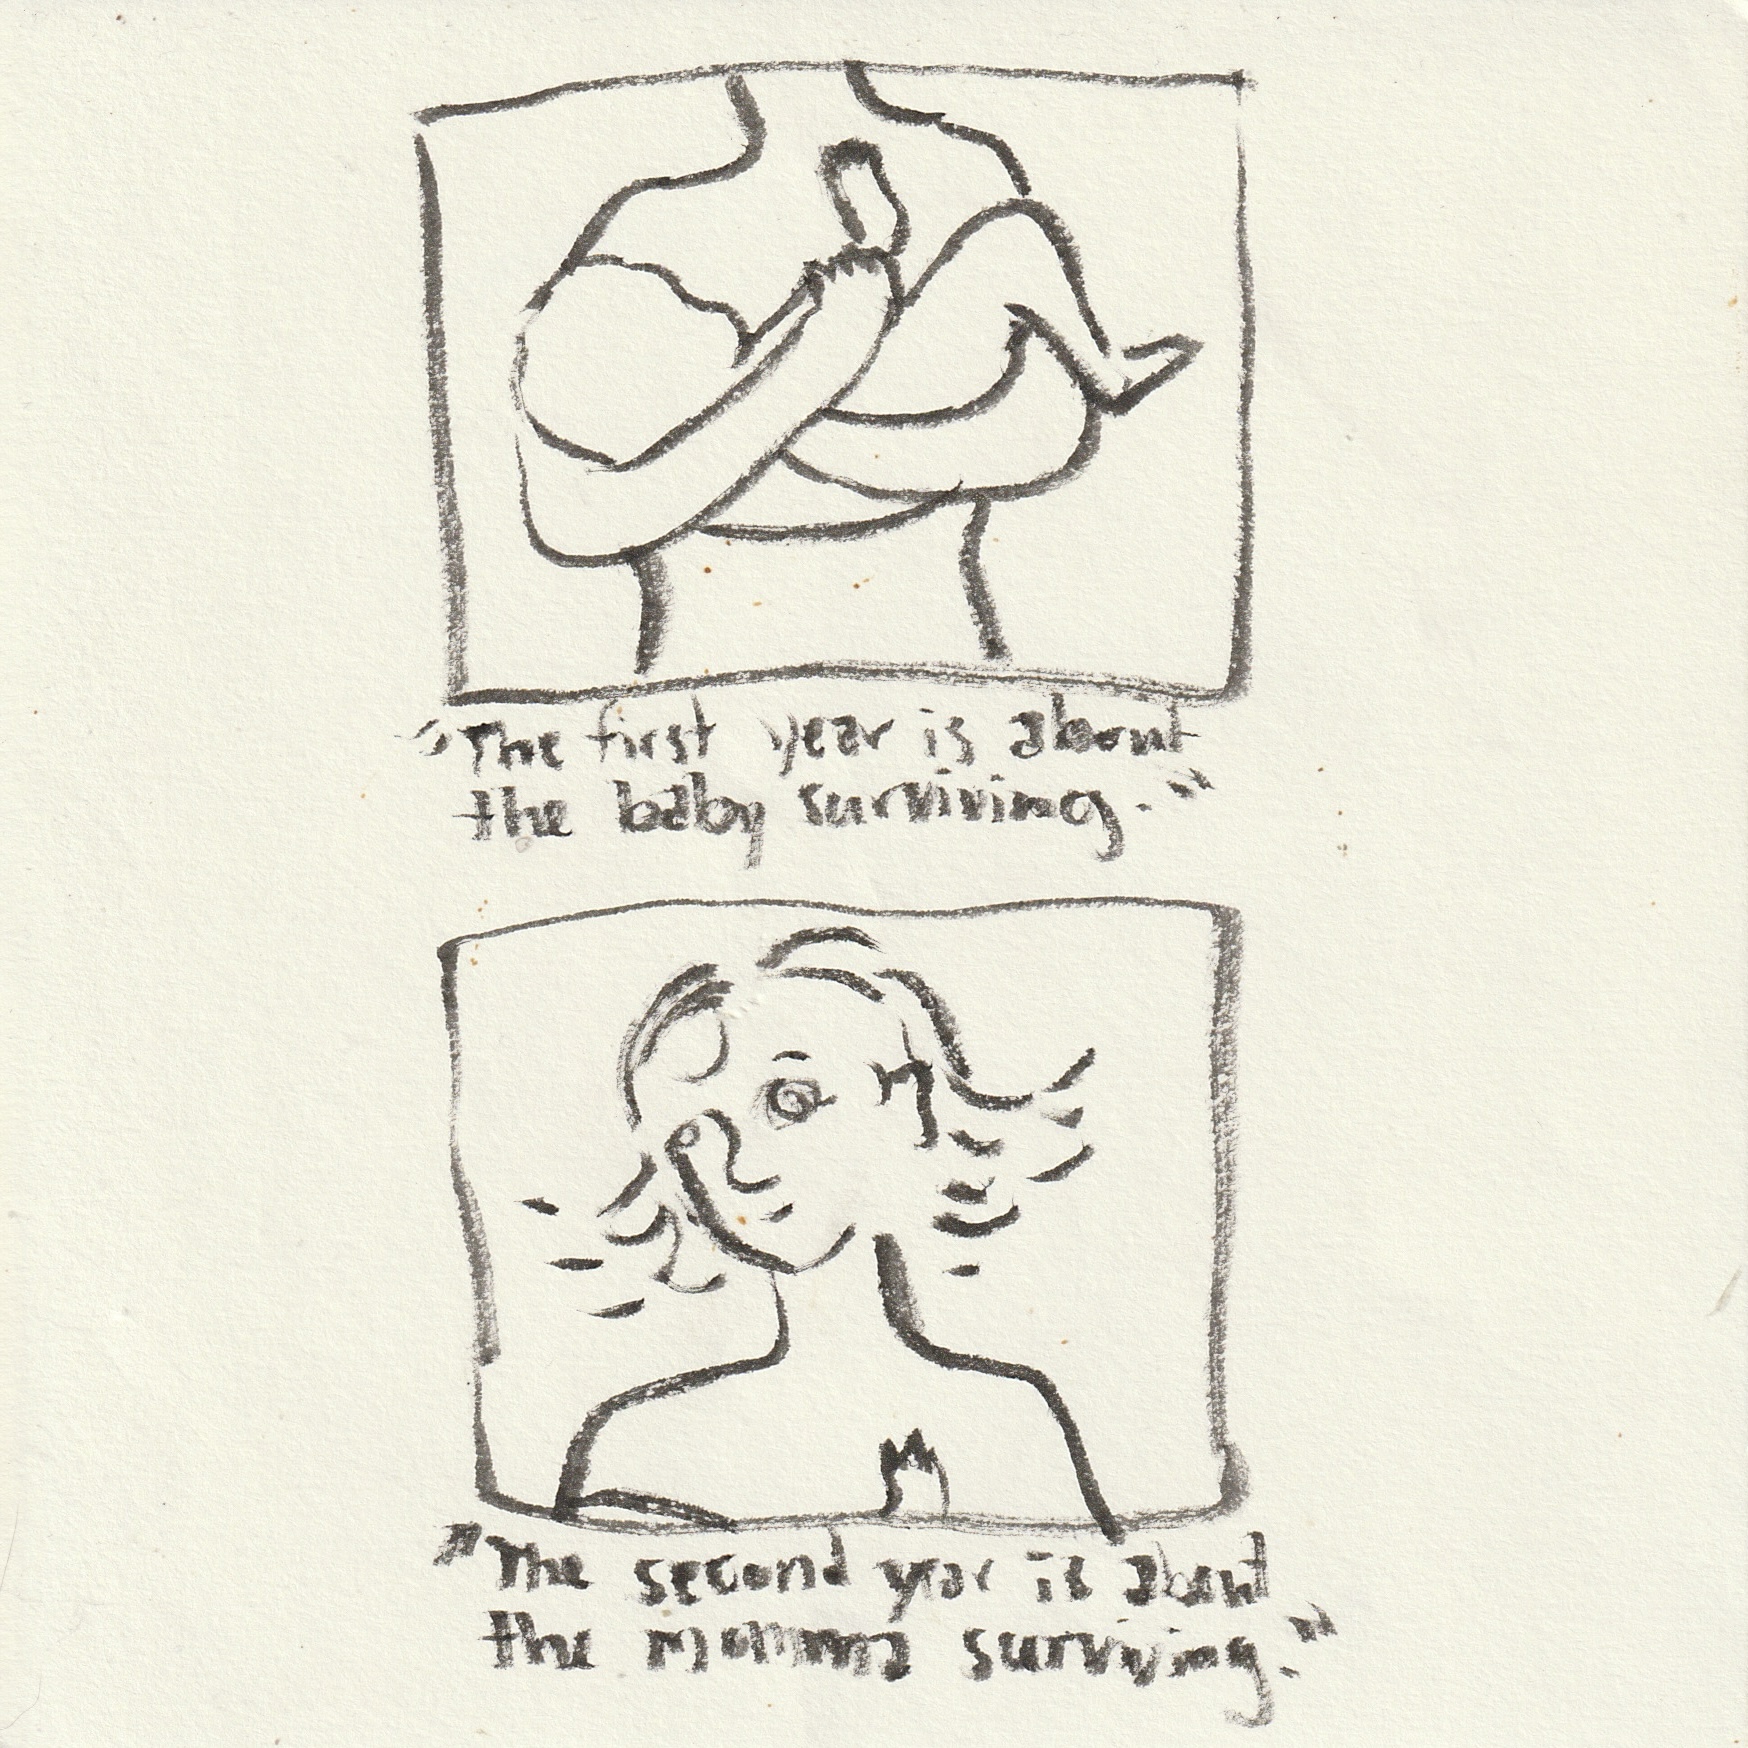 "The first year is about
the baby surviving."
"The second year is about
the momma surviving."